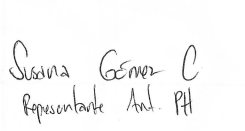 Susana Gómez C
Representante Ant. PH